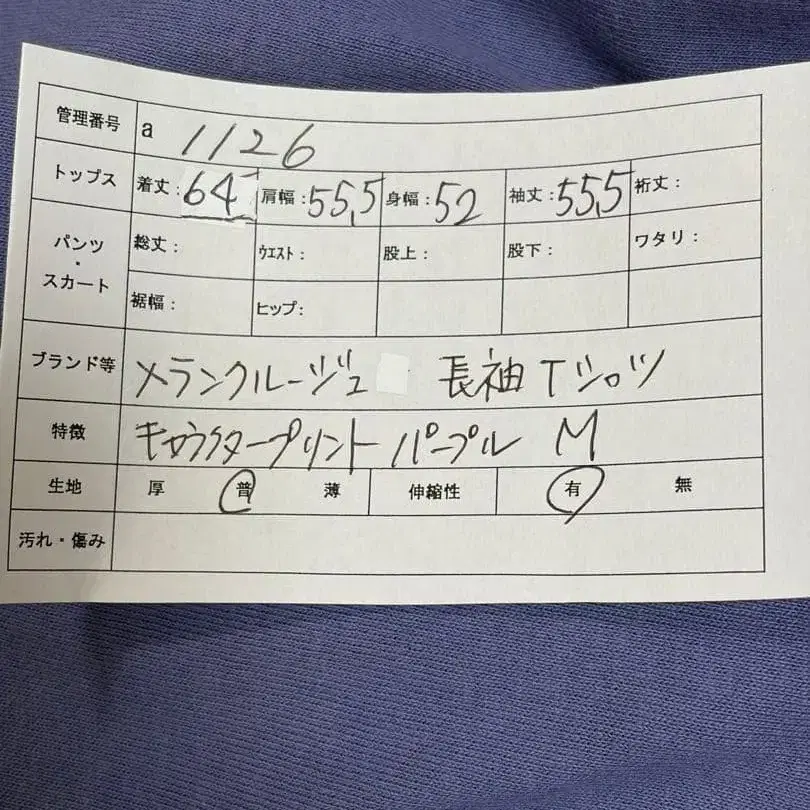 管理番号 a 1126
トップス 着丈：64 肩幅：55.5 身幅：52 袖丈：55.5 裄丈：
パンツ・スカート 総丈： ウエスト： 股上： 股下： ワタリ：
裾幅： ヒップ：
ブランド等 メランクルージュ 長袖Tシャツ
特徴 キャラクタープリント パープル M
生地 厚 普 薄 伸縮性 有 無
汚れ・傷み